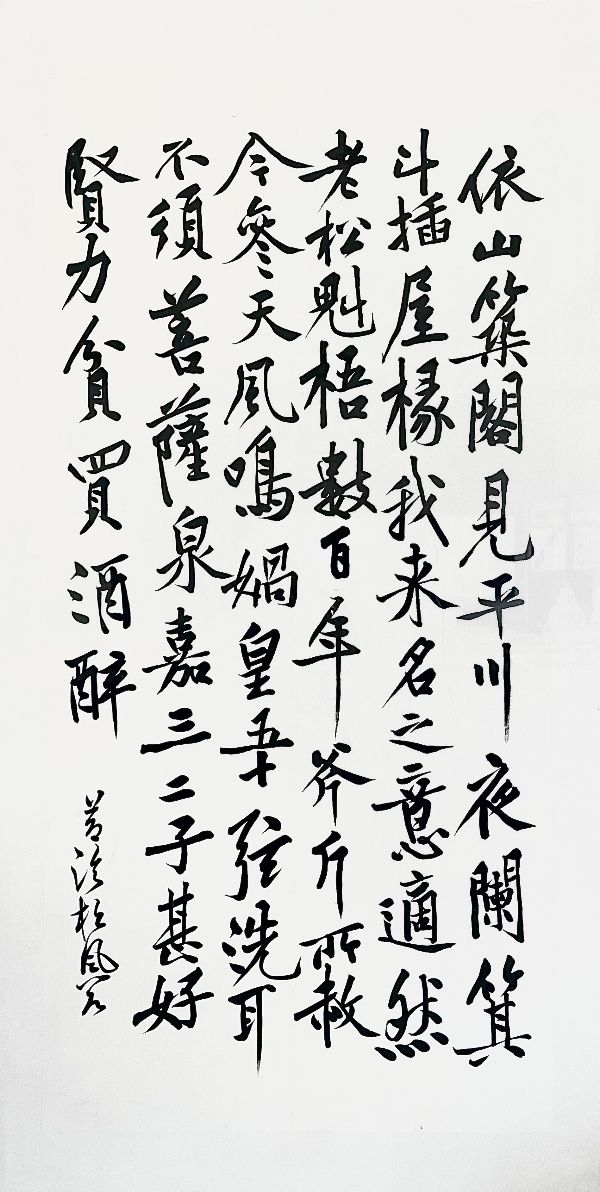 依山築閣見平川夜闌箕
斗插屋椽我来名之意適然
老松魁梧數百年斧斤所赦
今參天風鳴媧皇五十弦洗耳
不須菩薩泉嘉三二子甚好
賢力貧買酒醉
松風閣